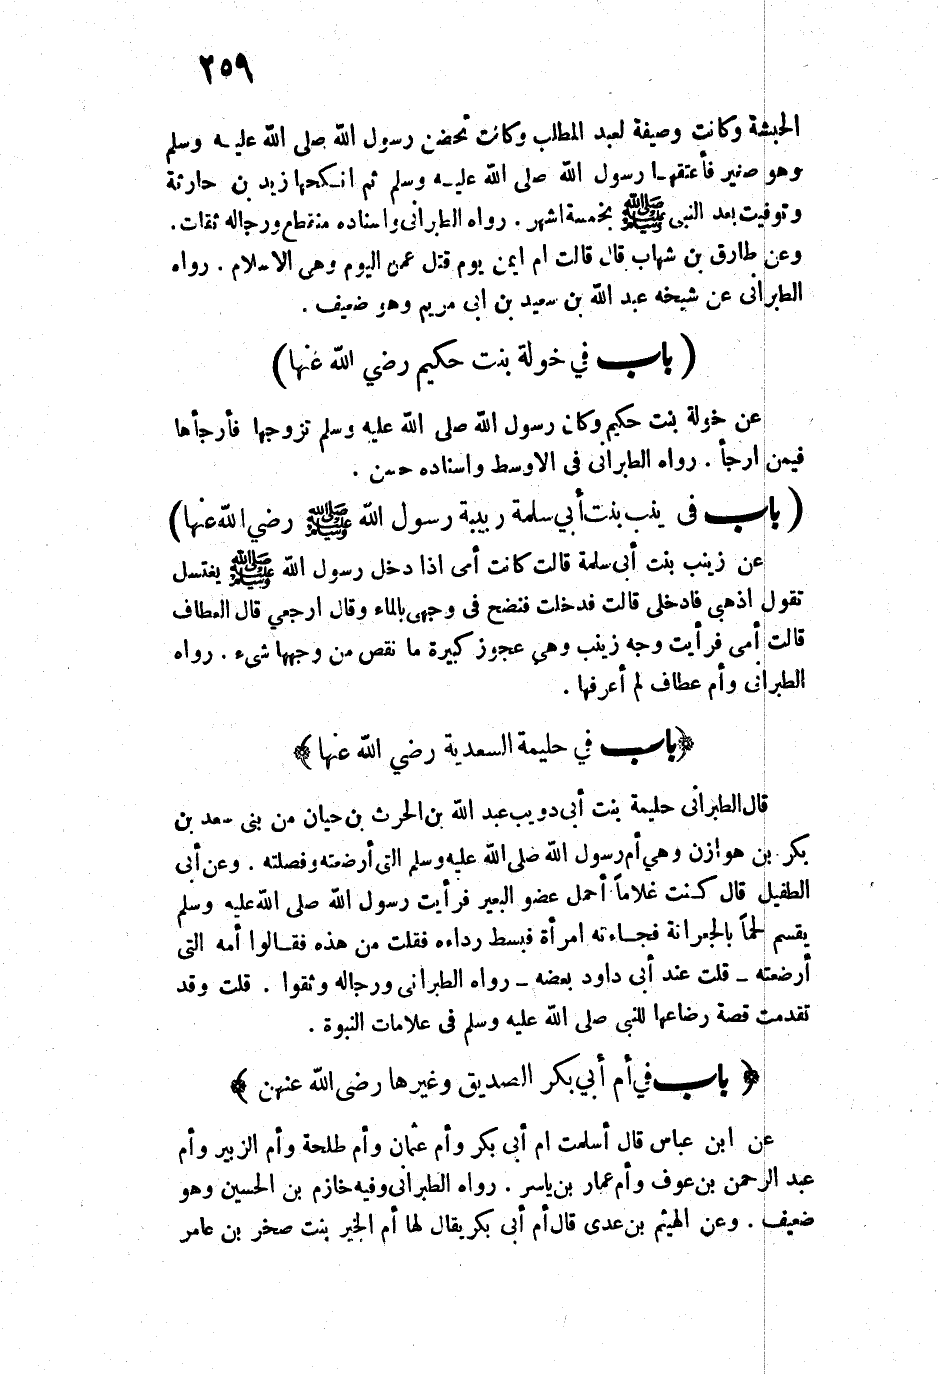 ٢٥٩
الحبشة وكانت وصيفة لعبد المطلب وكانت تحضن رسول الله صلى الله عليه وسلم
وهو صغير فأعتقها رسول الله صلى الله عليه وسلم ثم انكحها زيد بن حارثة
وتوفيت بعد النبي ﷺ بخمسة اشهر . رواه الطبرانى واسناده منقطع ورجاله ثقات .
وعن طارق بن شهاب قال قالت ام ايمن يوم قتل عمر اليوم وهى الاسلام . رواه
الطبرانى عن شيخه عبد الله بن سعيد بن ابى مريم وهو ضعيف .
( باب في خولة بنت حكيم رضي الله عنها )
عن خولة بنت حكيم وكان رسول الله صلى الله عليه وسلم تزوجها فأرجأها
فيمن ارجأ . رواه الطبرانى فى الاوسط واسناده حسن .
( باب فى ينب بنت أبي سلمة ربيبة رسول الله ﷺ رضي الله عنها )
عن زينب بنت أبى سلمة قالت كانت أمى اذا دخل رسول الله ﷺ يغتسل
تقول اذهبى فادخلى قالت فدخلت فنضح فى وجهى بالماء وقال ارجعي قال العطاف
قالت أمى فرأيت وجه زينب وهي عجوز كبيرة ما نقص من وجهها شىء . رواه
الطبرانى وأم عطاف لم أعرفها .
﴿ باب في حليمة السعدية رضي الله عنها ﴾
قال الطبرانى حليمة بنت أبى دويب عبد الله بن الحرث بن حيان من بنى سعد بن
بكر بن هوازن وهي أم رسول الله صلى الله عليه وسلم التى أرضعته وفصلته . وعن أبى
الطفيل قال كنت غلاماً أحمل عضو البعير فرأيت رسول الله صلى الله عليه وسلم
يقسم لحماً بالجعرانة فجاءته امرأة فبسط رداءه فقلت من هذه فقالوا أمه التى
أرضعته ـ قلت عند أبى داود بعضه ـ رواه الطبرانى ورجاله وثقوا . قلت وقد
تقدمت قصة رضاعها للنبى صلى الله عليه وسلم فى علامات النبوة .
﴿ باب في أم أبي بكر الصديق وغيرها رضى الله عنهن ﴾
عن ابن عباس قال أسلمت ام أبى بكر وأم عثمان وأم طلحة وأم الزبير وأم
عبد الرحمن بن عوف وأم عمار بن ياسر . رواه الطبرانى وفيه خازم بن الحسين وهو
ضعيف . وعن الهيثم بن عدى قال أم أبى بكر يقال لها أم الخير بنت صخر بن عامر